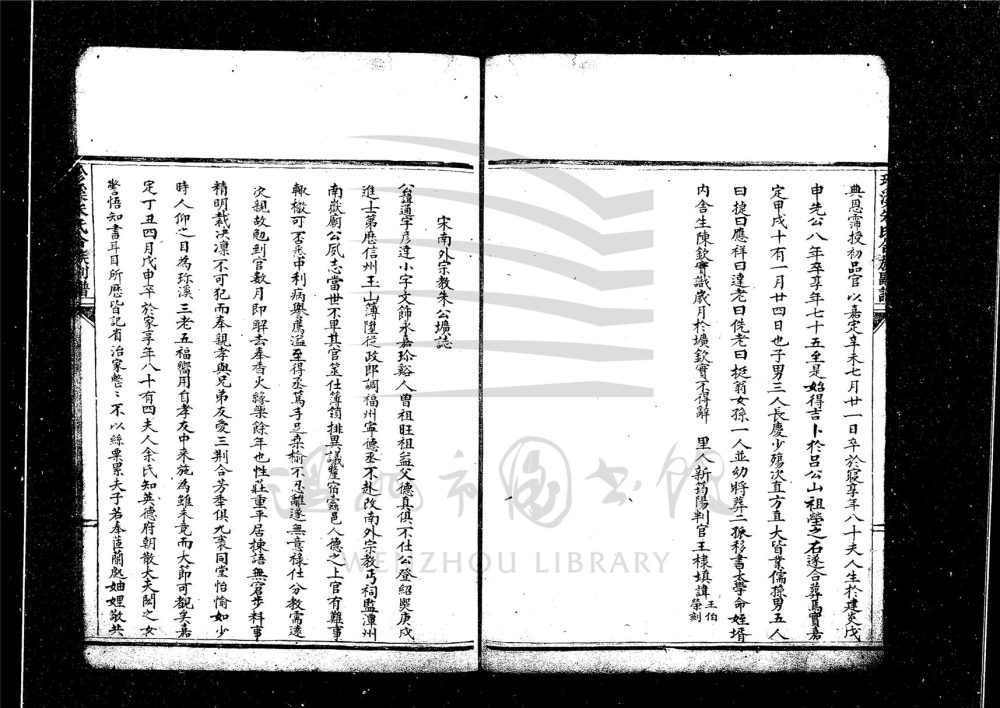 典恩霈授初品官以嘉定辛未七月廿一日卒於寢享年八十夫人生於建炎戊
申先公八年卒享年七十五至是始得吉卜於呂公山祖塋之右遂合葬焉實嘉
定甲戌十有一月廿四日也子男三人長慶少殤次直方直大皆業儒孫男五人
曰捷曰應祥曰達老曰侁老曰挺翁女孫一人並幼將葬二孤移書太學命姪壻
內舍生陳欽實識歲月於壙欽實不得辭 里人新筠陽判官王棣填諱 王伯榮刻
宋南外宗教朱公壙誌
公諱通字彥達小字文飾永嘉珍谿人曾祖旺祖益父德真俱不仕公登紹熙庚戌
進士第歷信州玉山簿陞從政郎調福州寧德丞不赴改南外宗教丐祠監潭州
南嶽廟公夙志當世不早其官筮仕簿領排異議釐宿蠹邑人德之上官有難事
輒檄可否悉中利病舉薦溢至得丞篤手足桑榆不忍離遂無意祿仕分教需遠
次親故勉到官數月即解去奉香火緣樂餘年也性莊重平居揀語無窘步料事
精明裁决凜不可犯而奉親孝與兄弟友愛三荆合芳耄俱九袠同堂怡愉如少
時人仰之目為珎溪三老五福嚮用自孝友中來施為雖未竟而大節可觀矣嘉
定丁丑四月戊申卒於家享年八十有四夫人余氏知英德府朝散大夫閎之女
警悟知書耳目所歷皆記省治家嗸嗸不以絲粟累夫子若奉菹闈處妯娌敬共